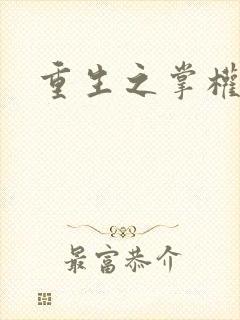 重生之掌權
最富恭介